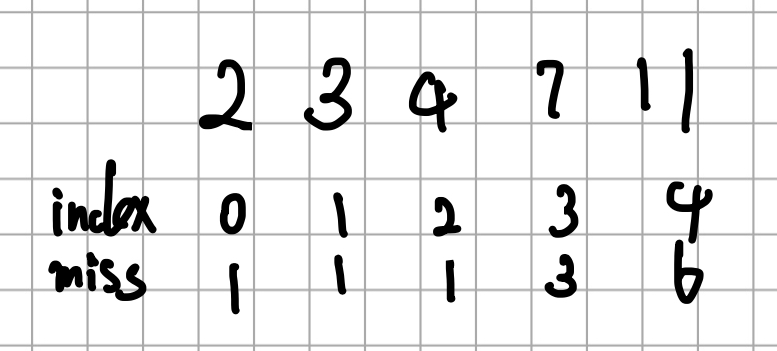 2 3 4 7 11
index 0 1 2 3 4
miss 1 1 1 3 6